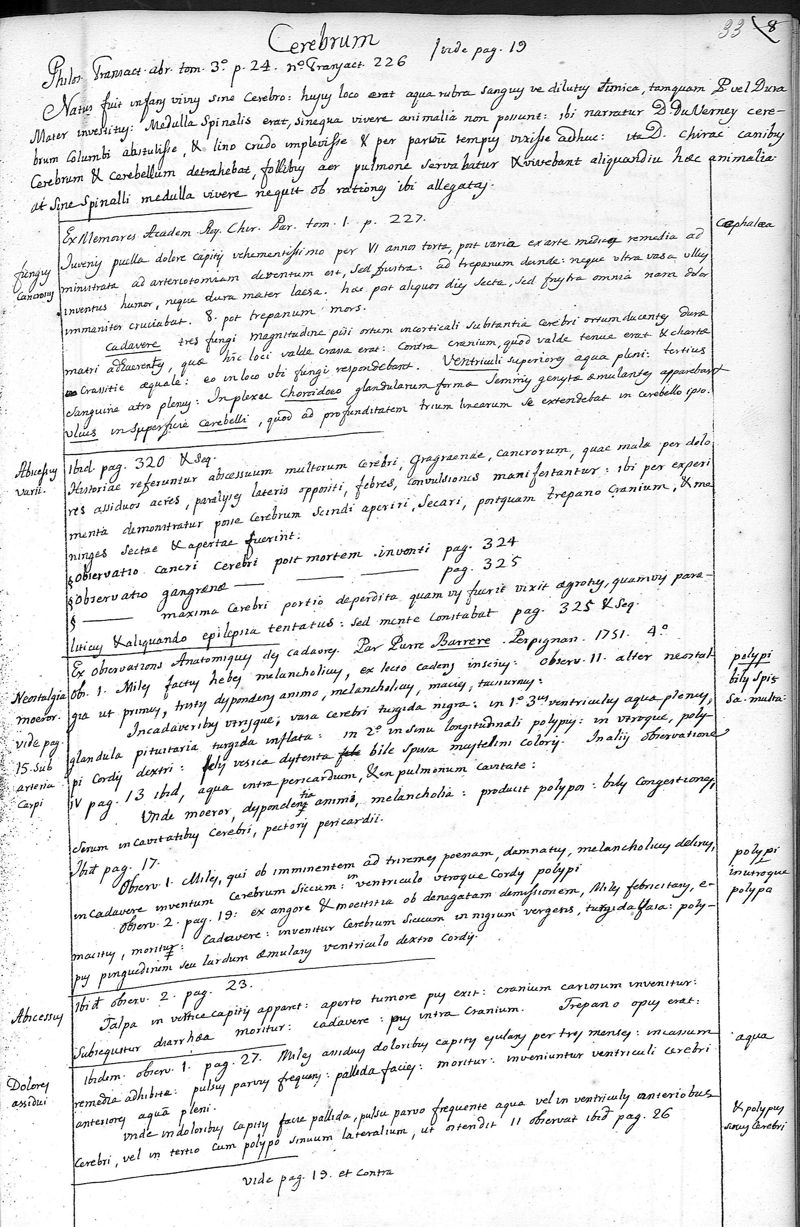 33 8
Cerebrum
/vide pag. 19
Philos. Transact. abr. tom. 3.o p. 24. no. Transact. 226
Natus fuit infans vivus sine Cerebro: hujus loco erat aqua rubra sanguine dilutis tunica, tamquam P. vel Dura
Mater investitus: Medulla Spinalis erat, sine qua vivere animalia non possunt: ibi narratur D. Du Verney cere-
brum Columbi abstulisse, & lino crudo implevisse & per parvum tempus vixisse adhuc: D. Chirac canibus
Cerebrum & cerebellum detrahebat, follibus aer pulmone servabatur & vivebant aliquandiu hæc animalia
at sine Spinalli medulla vivere nequit ob rationes ibi allegatas.
Ex Memoires Academ. Roy. Chir. Par. tom. 1. p. 227.
Cephalæa
fungus
Cancrosus
Iuvenis puella dolore capitis vehementissimo per VI annos torta, post varia ex arte medica remedia ad
ministrata ad arteriotomiam deventum est, sed frustra: ad trepanum deinde: neque ultra vasa ullus
inventus humor, neque dura mater laesa. hæc post aliquos dies secta, sed frustra omnia nam dolor
immaniter cruciabat. 8. post trepanum mors.
Cadavere tres fungi magnitudine pisi ortum in corticali substantia Cerebri ortum ducentes duræ
matri adhærentes, quæ hic loci valde crassa erat: Contra cranium, quod valde tenue erat & chartæ
Crassitie æquale: eo in loco ubi fungi respondebant. Ventriculi superiores aqua pleni: tertius
Sanguine atro plenus: In plexu Choroideo glandularum forma Seminis genystæ æmulantes apparebant
Ulcus in superficie Cerebelli, quod ad profunditatem trium linearum se extendebat in cerebello ipso.
Abscessus
varii.
Ibid. pag. 320 & seq.
Historiae referuntur abscessuum multorum Cerebri, Gragraenae, Cancrorum, quae mala per dolo
res assiduos acres, paralyses lateris oppositi, febres, convulsiones manifestantur: ibi per experi
menta demonstratur posse Cerebrum scindi aperiri, Secari, postquam trepano Cranium, & me
ninges sectae & apertae fuerint.
§ Observatio Cancri Cerebri post mortem inventi pag. 324
§ Observatio gangrænæ — — — pag. 325
§ — maxima Cerebri portio deperdita quamvis fuerit vixit ægrotus, quamvis para-
liticus & aliquando epilepsia tentatus: sed mente Constabat pag. 325 & seq.
Ex observations Anatomiques des cadavres. Par Pierre Barrere. Perpignan. 1751. 4.o
Neostalgia
moeror.
vide pag.
15. sub
arteria
Carpi
polypi
bilis spis
sa. multa:
Ob. 1. Miles factus hebes melancholicus, ex lecto cadens inscius: observ. 11. alter neostal
gia ut primus, tristis dispondens animo, melancholicus, macies, taciturnus:
In cadaveribus utrisque, vasa cerebri turgida nigra: in 1.o 3us ventriculus aqua plenus,
glandula pituitaria turgida inflata: in 2.o in sinu longitudinali polypus: in utroque, poly-
pi Cordis dextri: vesica distenta bile spissa mustelini coloris. In aliis observatione
IV pag. 13 ibid, aqua intra pericardium, & in pulmonum cavitate:
Unde moeror, dispondentia animi, melancholia: producit polypos: bilis congestiones,
Serum in cavitatibus Cerebri, pectoris pericardii.
Ibid. pag. 17.
polypi
in utroque
polypa
Observ. 1. Miles, qui ob imminentem ad triremes poenam, damnatus, melancholicus delirus,
in cadavere inventum Cerebrum siccum: in ventriculo utroque Cordis polypi
Observ. 2. pag. 19: ex angore & moestitia ob denagatam demissionem, Miles febricitans, e-
maciatus, moritur: Cadavere: invenitur Cerebrum siccum in nigrum vergens, turgida vasa: poly-
pus pinguedinem seu lardum æmulans ventriculo dextro Cordis.
Abscessus
Ibid. observ. 2. pag. 23.
Talpa in vertice capitis apparet: aperto tumore pus exit: cranium cariosum invenitur:
Subsequitur diarrhæa moritur: cadavere: pus intra Cranium. Trepano opus erat:
Dolores
assidui
aqua
Ibidem observ. 1. pag. 27. Miles assiduis doloribus capitis ejulans per tres menses: incassum
remedia adhibita: pulsus parvus frequens: pallida facies: moritur: inveniuntur ventriculi cerebri
anteriores aqua pleni.
& polypus
sinus Cerebri
Unde in doloribus capitis facie pallida, pulsu parvo frequente aqua vel in ventriculis anterioribus
Cerebri, vel in tertio cum polypo sinuum lateralium, ut ostendit 11 observat ibid. pag. 26
vide pag. 19. et Contra